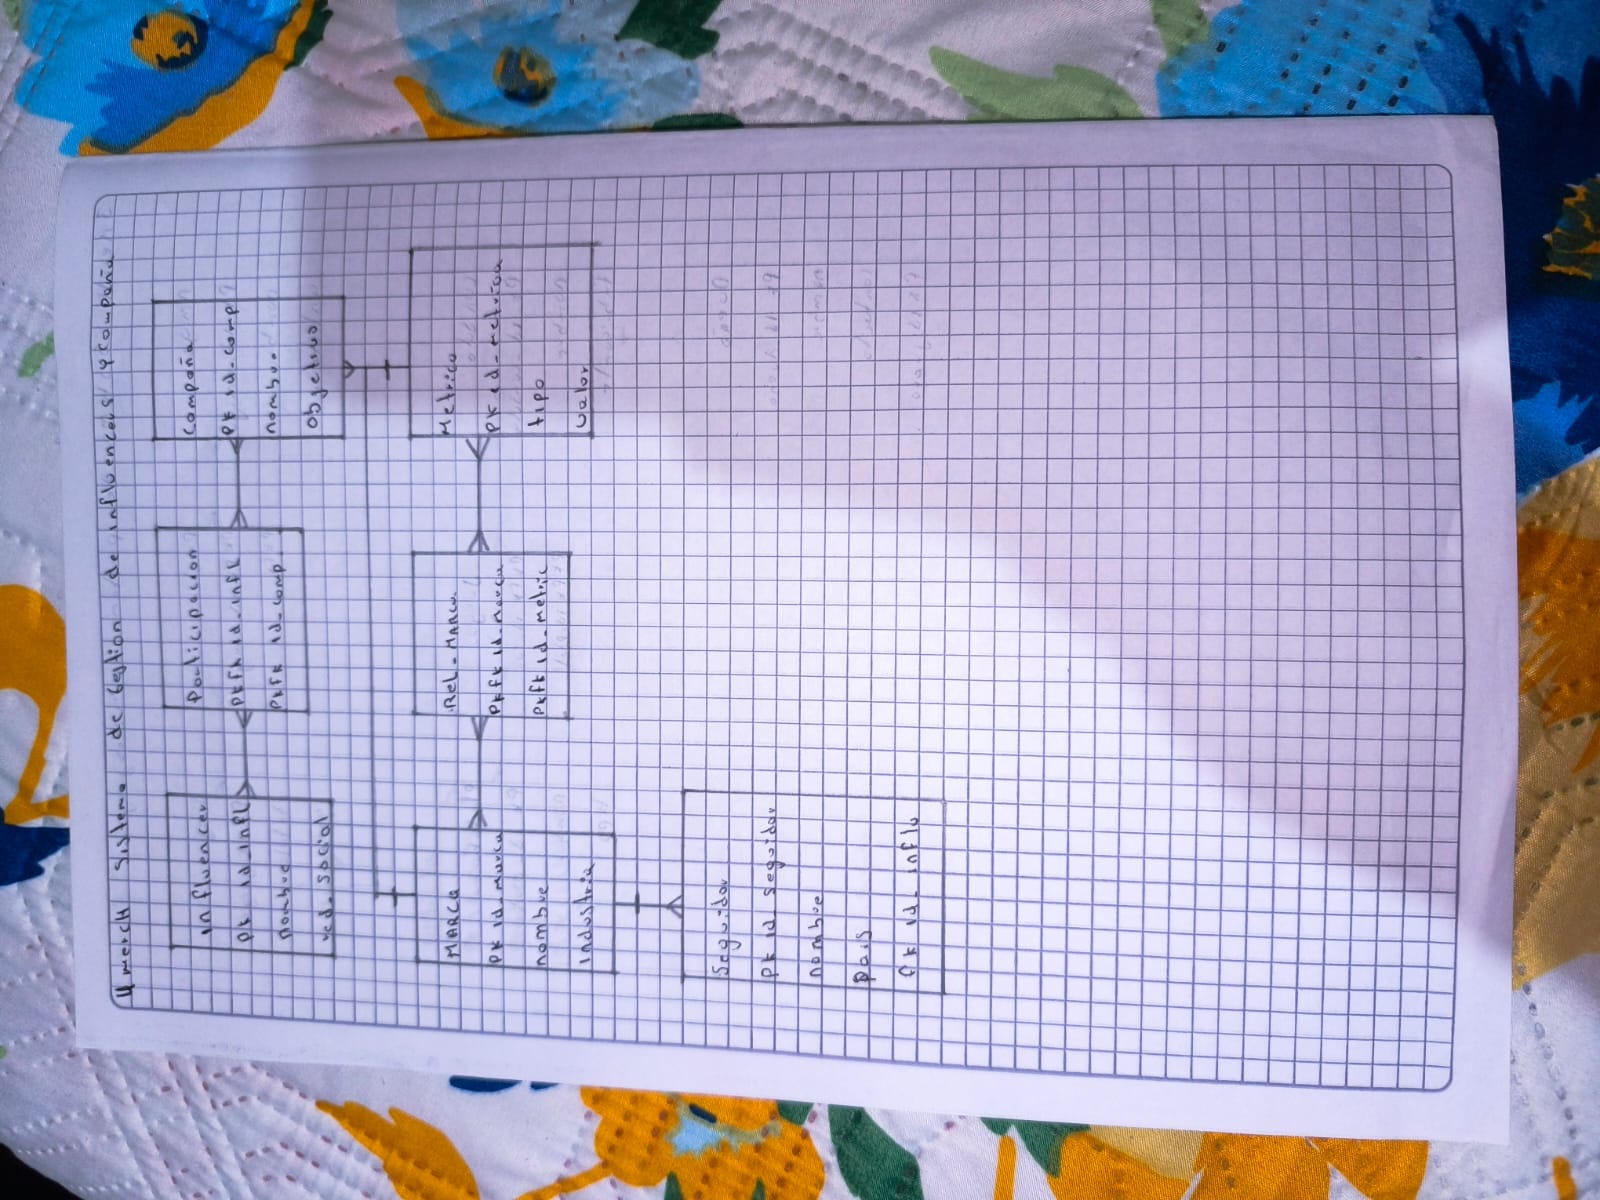 4 merch sistema de Gestion de influencers y compañia
influencer
pk id_infl
nombre
red_social
Participacion
pkfk id_infl
pkfk id_comp
Compañia
pk id_comp
nombre
objetivo
MARCA
pk id_marca
nombre
industria
Rel_Marca
pkfk id_marca
pkfk id_metric
Metrica
pk id_metrica
tipo
valor
Seguidor
pk id_seguidor
nombre
pais
fk id_influ